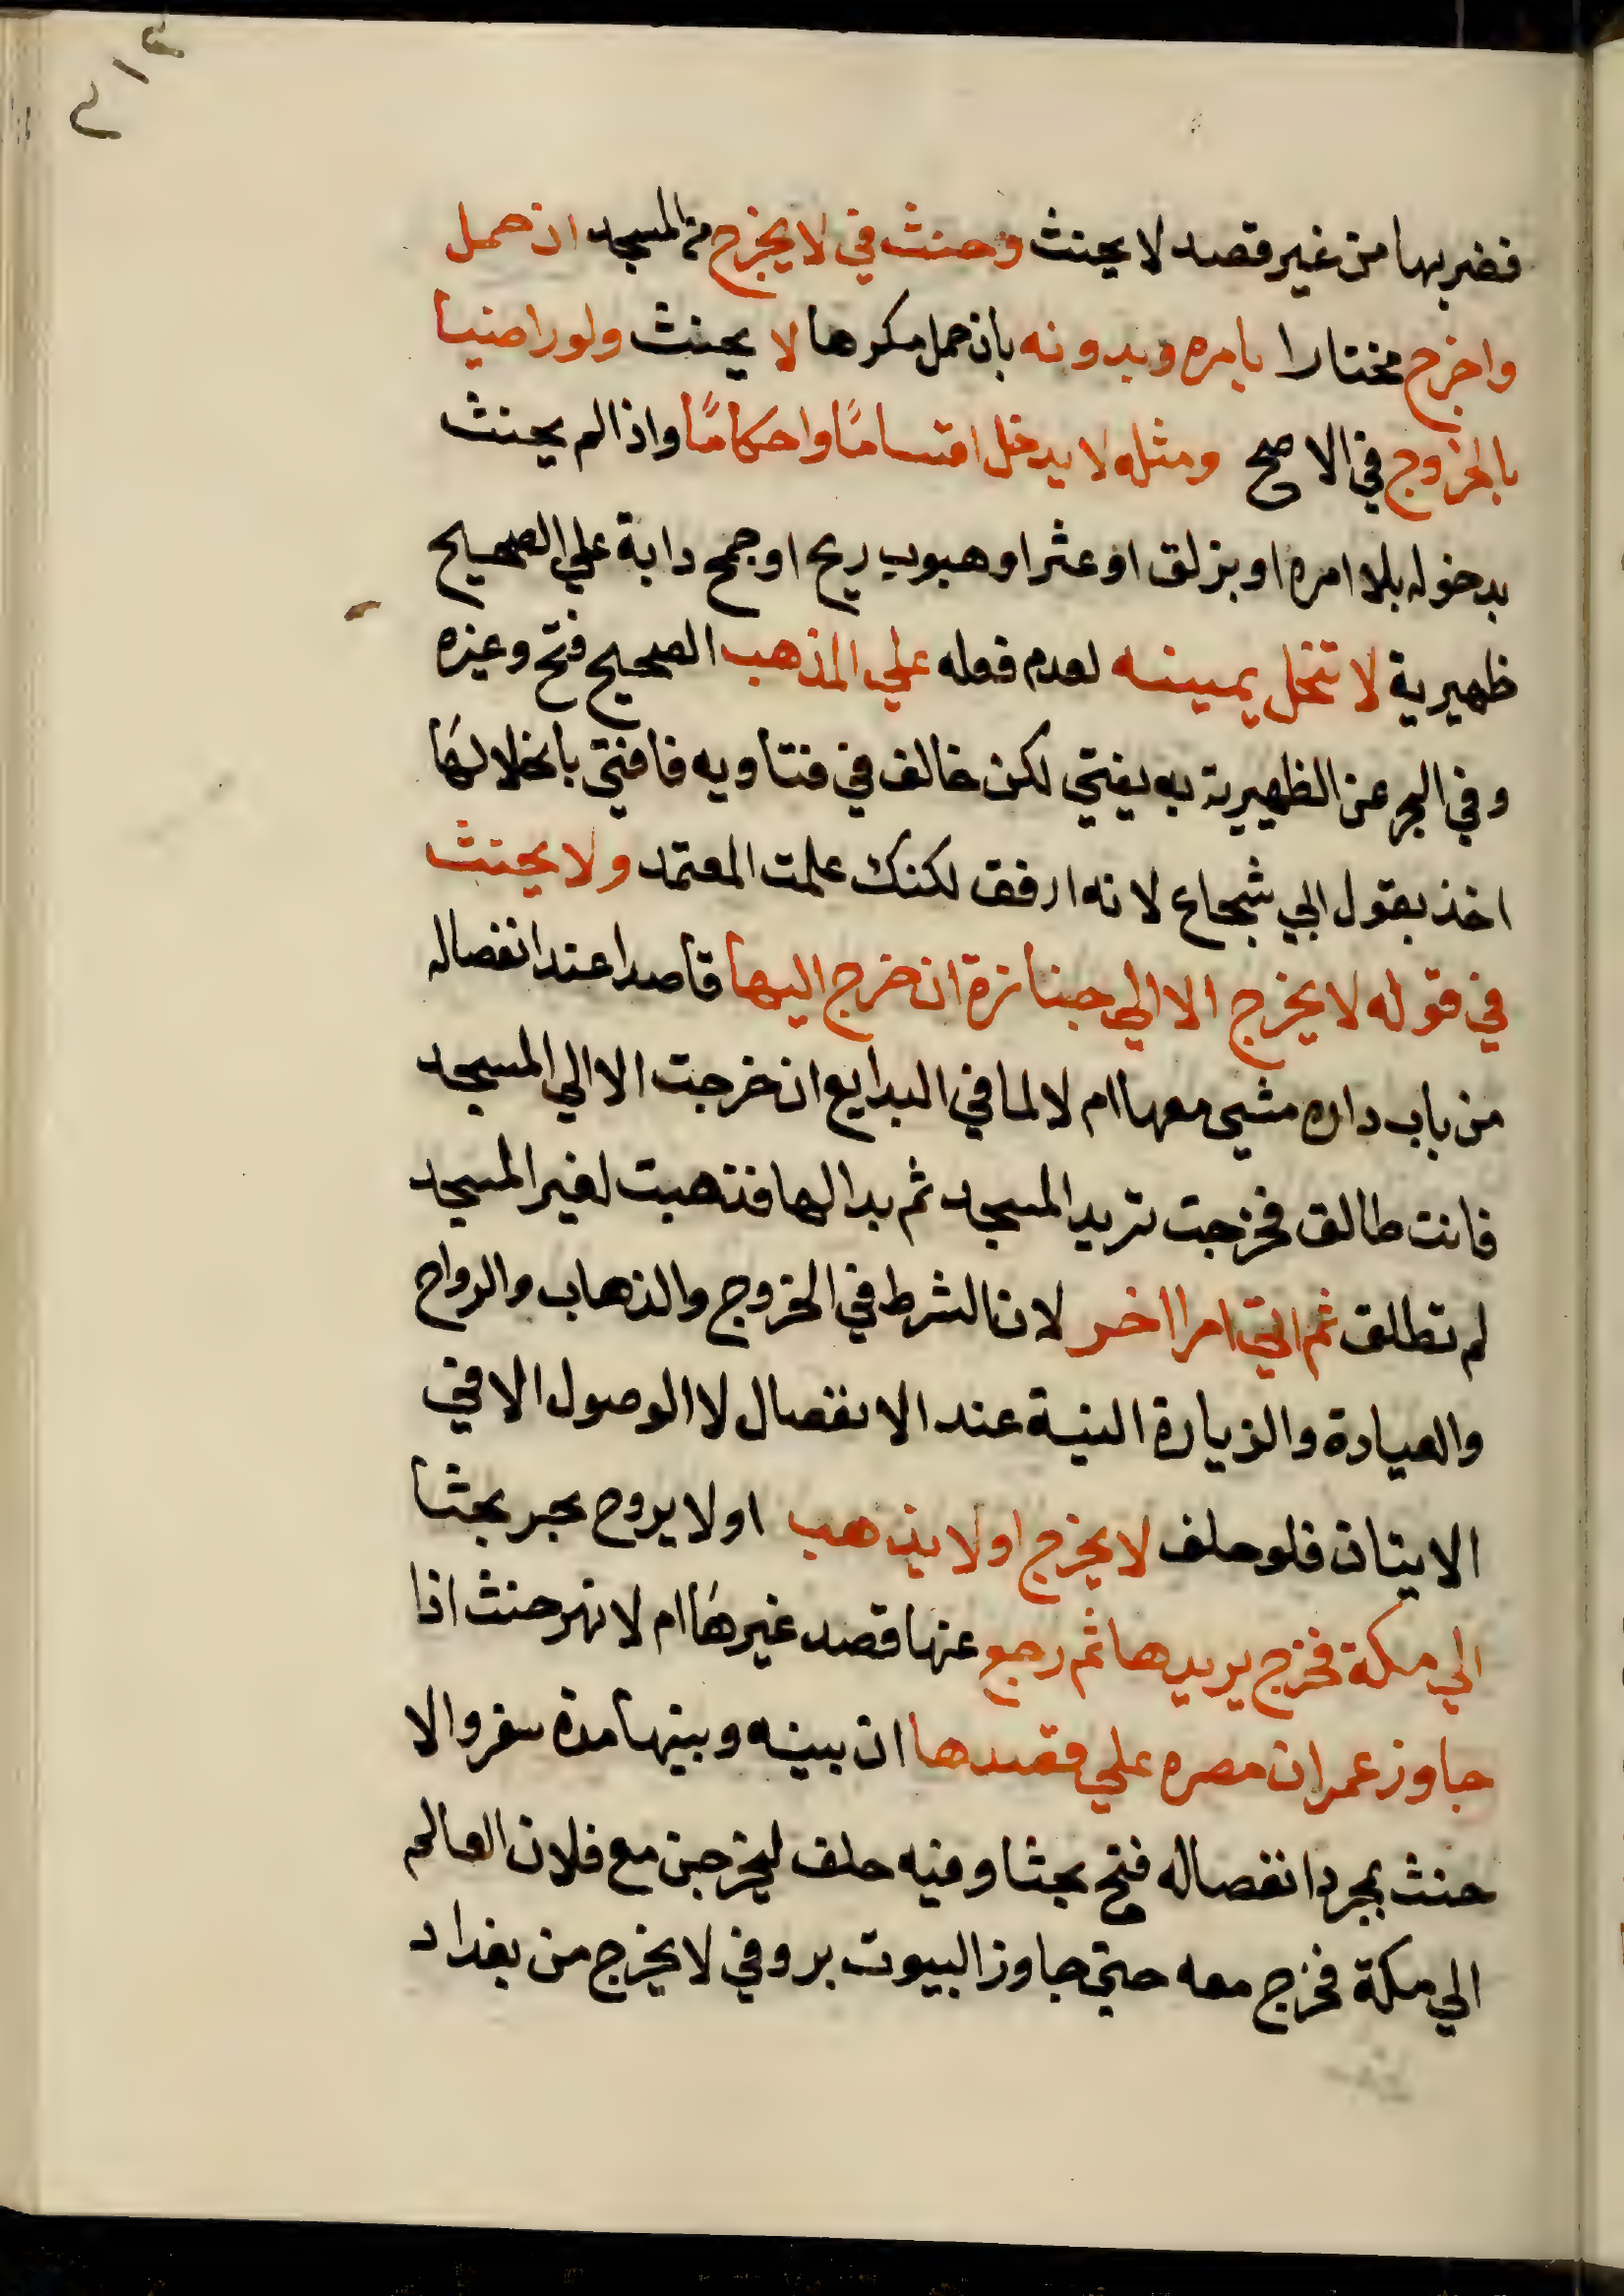 فضربها من غير قصد لا يحنث وحنث في لا يخرج من المسجد ان حمل
واخرج مختارا بامره وبدونه بان حمل مكرها لا يحنث ولو راضيا
بالخروج في الاصح ومثله لا يدخل اقساما واحكاما واذا لم يحنث
بدخوله بلا امره او بزلق او عثر او هبوب ريح او جمح دابة علي الصحيح
ظهيرية لا تنحل يمينه لعدم فعله علي المذهب الصحيح فتح وغيره
وفي البحر عن الظهيرية به يفتي لكن خالف في فتاويه فافتي بانحلالها
اخذ بقول ابي شجاع لانه ارفق لكنك علمت المعتمد ولا يحنث
في قوله لا يخرج الا الي جنازة ان خرج اليها قاصدا عند انفصاله
من باب داره مشي معها ام لا لما في البدايع ان خرجت الا الي المسجد
فانت طالق فخرجت تريد المسجد ثم بدا لها فذهبت لغير المسجد
لم تطلق ثم اتي امرا اخر لان الشرط في الخروج والذهاب والرواح
والعيادة والزيارة النية عند الانفصال لا الوصول الا في
الاتيان فلو حلف لا يخرج او لا يذهب او لا يروح بحر بحثا
الي مكة فخرج يريدها ثم رجع عنها قصد غيرها ام لا نهر حنث اذا
جاوز عمران مصره علي قصدها ان بينه وبينها مدة سفر والا
حنث بمجرد انفصاله فتح بحثا وفيه حلف ليخرجن مع فلان العالم
الي مكة فخرج معه حتي جاوز البيوت بر وفي لا يخرج من بغداد